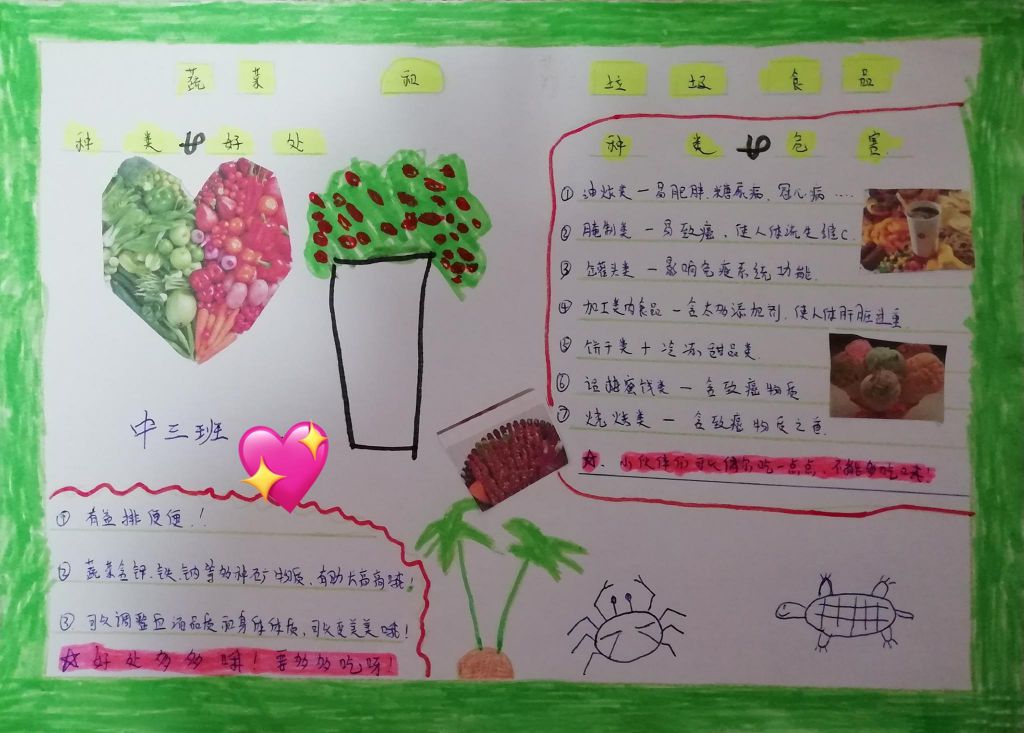 蔬菜 和 垃圾食品
种类 & 好处
中三班
①有益排便便!
②蔬菜含钾、铁、钠等多种矿物质,有助长高高哦!
③可以调整血液品质和身体体质,可以更美美哦!
☆好处多多哦!要多多吃呀!
种类 & 危害
①油炸类一易肥胖.糖尿病.冠心病....
②腌制类一易致癌、使人体流失维C.
③罐头类一影响免疫系统功能.
④加工类肉食品一含太多添加剂.使人体肝脏过重
⑤饼干类+冷冻甜品类.
⑥话梅蜜饯类一含致癌物质
⑦烧烤类一含致癌物质之首.
☆、小伙伴们可以偶尔吃一点点、不能多吃哦!